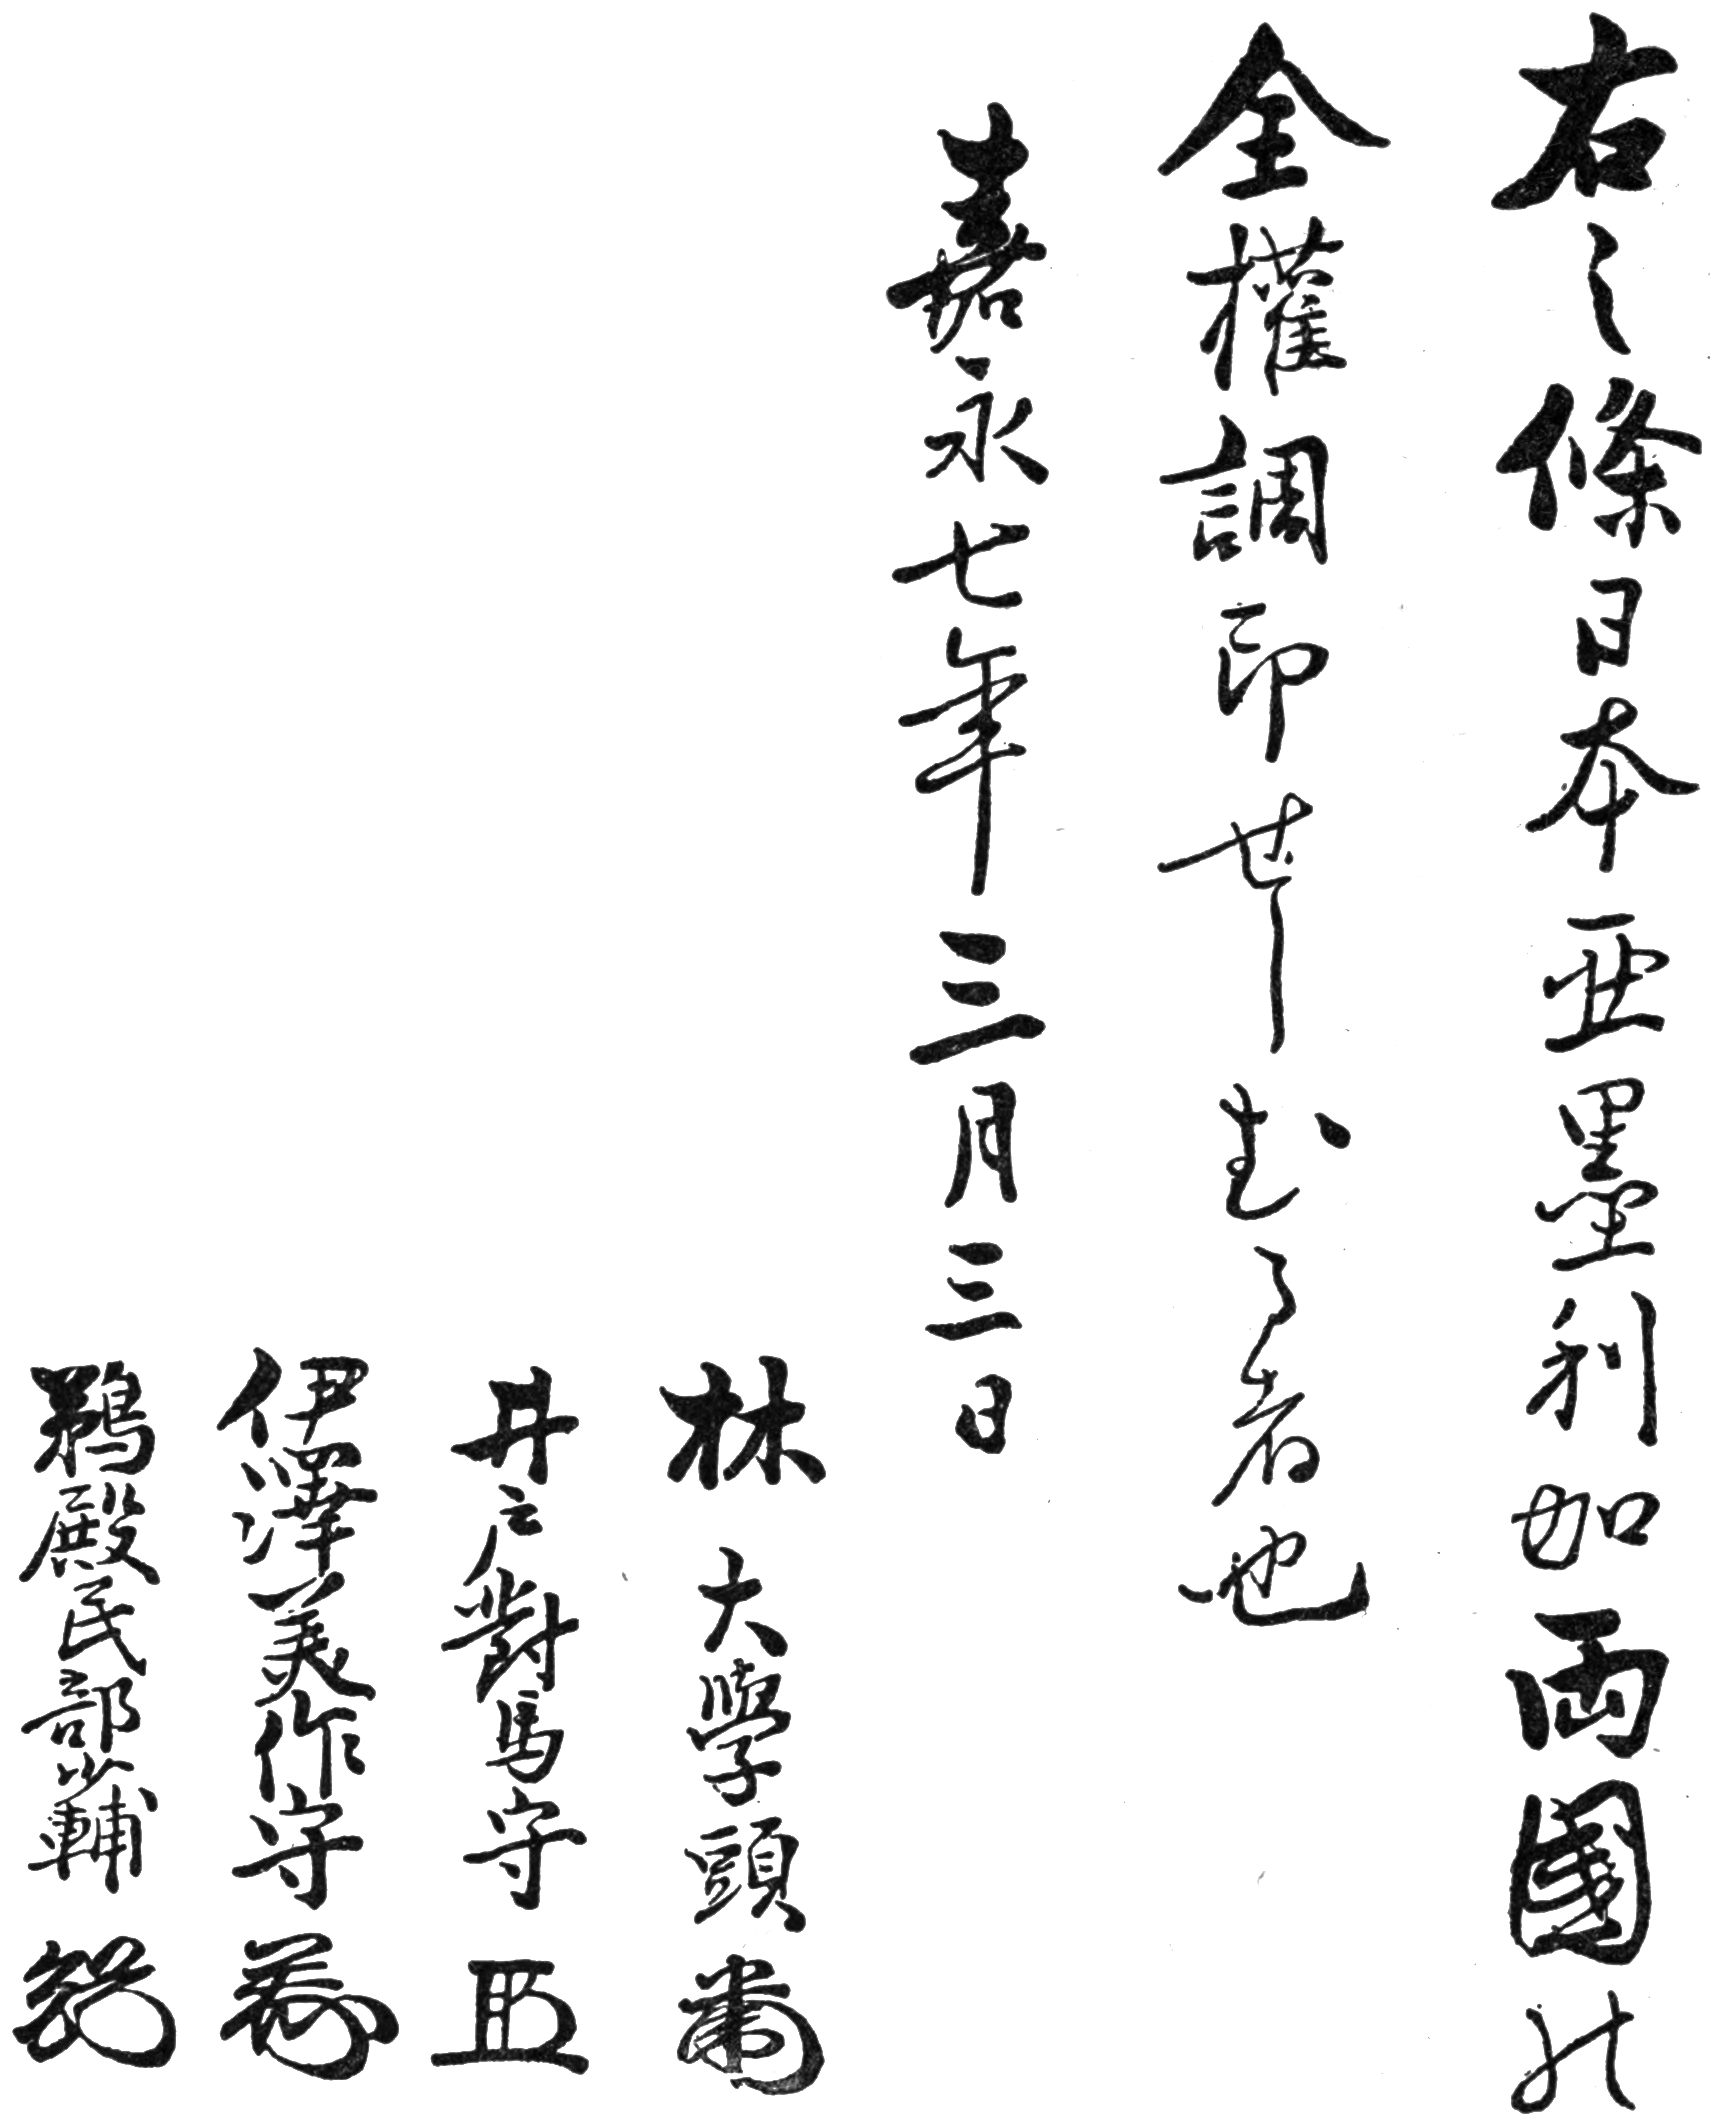 右之條日本亜墨利加兩國の
全權調印せしむる者也
嘉永七年三月三日
林大學頭
井戸對馬守
伊澤美作守
鵜殿民部少輔